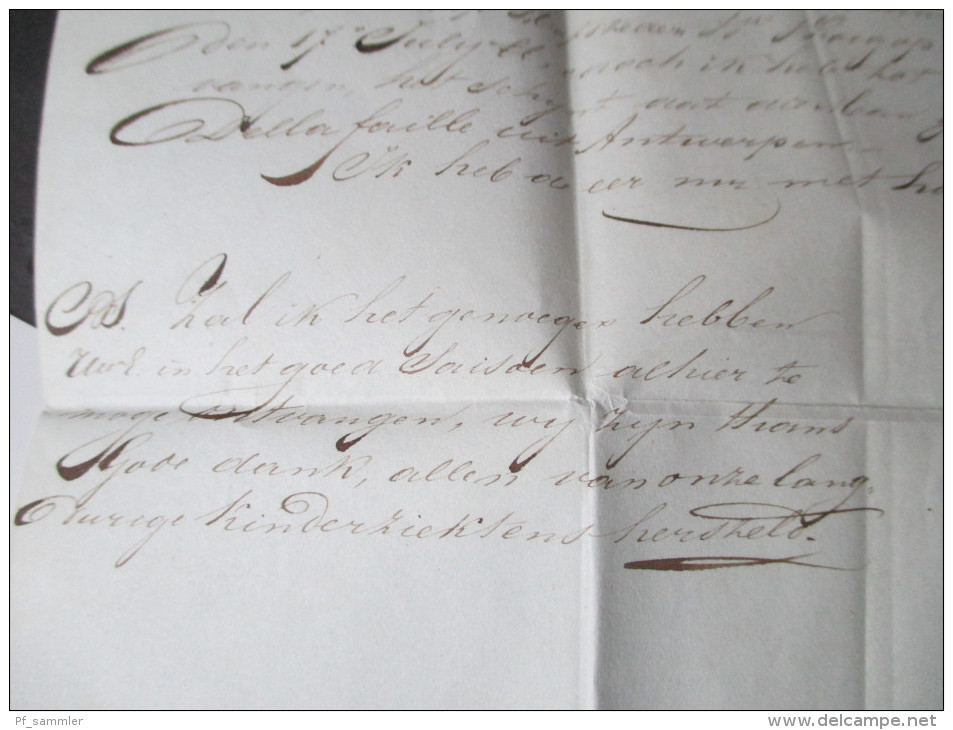 den 17 July
vangen, het schynt dat
Della faille uit Antwerpen
Ik heb de eer my met
PS. Zal ik het genoegen hebben
UwE. in het goed Saisoen alhier te
moge ontvangen, wy zyn thans
Gode dank, allen van onze lang
durige kinderziektens hersteld.
Pf_sammler
www.delcampe.net